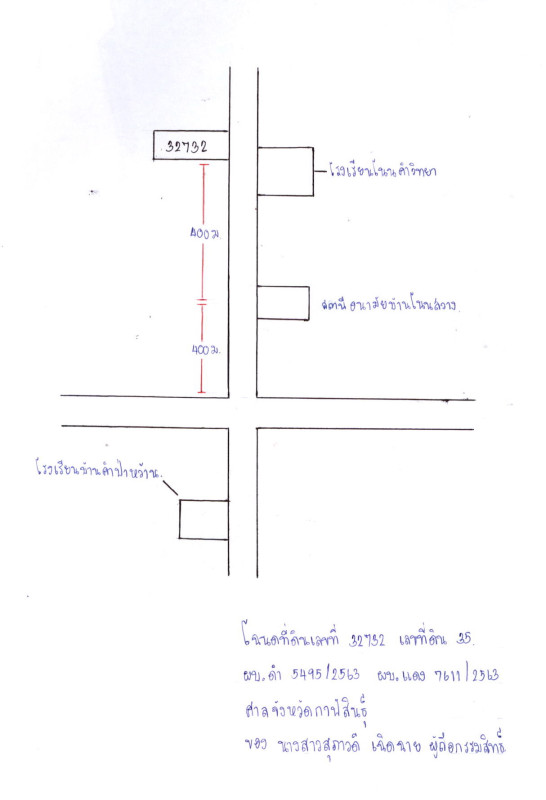 32732
โรงเรียนโนนคำวิทยา
400 ม.
สถานีอนามัยบ้านโนนสวาง.
400 ม.
โรงเรียนบ้านคำป่าหว้าน.
โฉนดที่ดินเลขที่ 32732 เลขที่ดิน 35.
ผบ.ดำ 5495/2563 ผบ.แดง 7611/2563
ศาลจังหวัดกาฬสินธุ์
ของ นางสาวสุภาวดี เฉิดฉาย ผู้ถือกรรมสิทธิ์